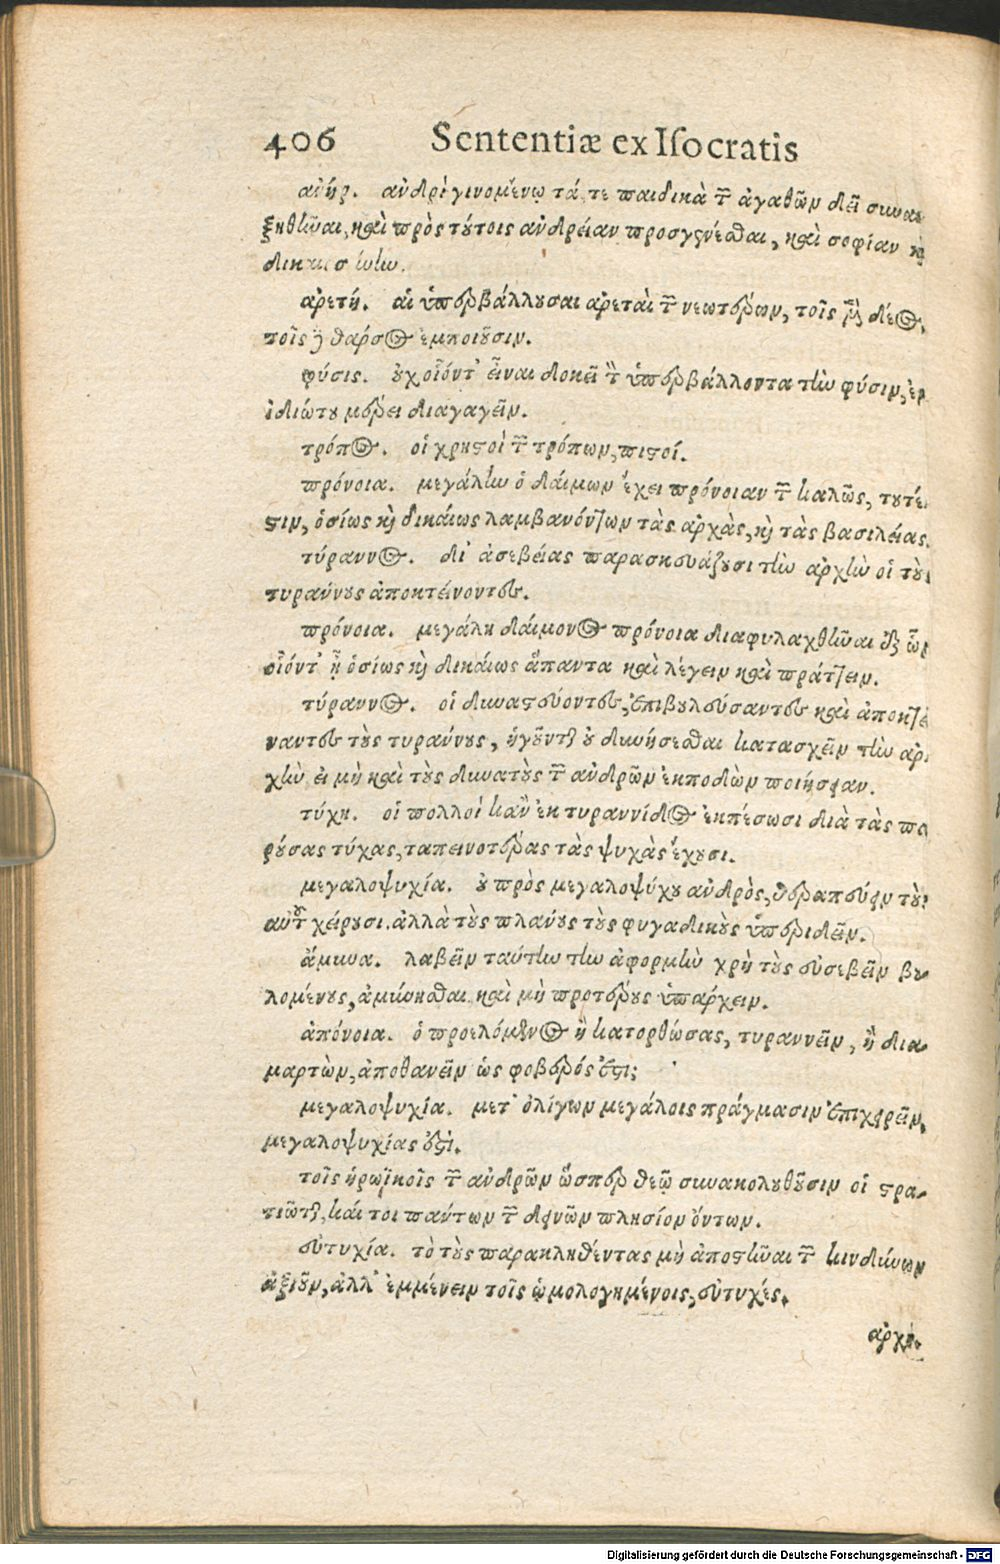 406 Sententiæ ex Iſocratis
ἀνήρ. ἀνδρὶ γινομένῳ τά, τε παιδικὰ τῶν ἀγαθῶν δεῖ συναυ-
ξηθῆναι, καὶ πρὸς τούτοις ἀνδρείαν προσγενέσθαι, καὶ σοφίαν καὶ
δικαιοσύνην.
ἀρετή. αἱ ὑπερβάλλουσαι ἀρεταὶ τῶν νεωτέρων, τοῖς μὲν δέος,
τοῖς δὲ θάρσος ἐμποιοῦσιν.
φύσις. οὐχ οἷόντ᾽ εἶναι δοκεῖ τὸν ὑπερβάλλοντα τὴν φύσιν, ἐν
ἰδιώτου μέρει διαγαγεῖν.
τρόπος. οἱ χρηστοὶ τῶν τρόπων, πιστοί.
πρόνοια. μεγάλην ὁ δαίμων ἔχει πρόνοιαν τῶν καλῶς, τουτέ-
στιν, ὁσίως καὶ δικαίως λαμβανόντων τὰς ἀρχὰς, καὶ τὰς βασιλείας.
τύραννος. δι᾽ ἀσεβείας παρασκευάζουσι τὴν ἀρχὴν οἱ τοὺς
τυράννους ἀποκτείνοντες.
πρόνοια. μεγάλη δαίμονος πρόνοια διαφυλαχθῆναι ἐξ ὧν
οἷόντ᾽ ᾖ ὁσίως καὶ δικαίως ἅπαντα καὶ λέγειν καὶ πράττειν.
τύραννος. οἱ δυναστεύοντες, ἐπιβουλεύσαντες καὶ ἀποκτεί
ναντες τοὺς τυράννους, ἡγοῦνται οὐ δυνήσεσθαι κατασχεῖν τὴν ἀρ-
χὴν εἰ μὴ καὶ τοὺς δυνατοὺς τῶν ἀνδρῶν ἐκποδὼν ποιήσειαν.
τύχη. οἱ πολλοὶ κἂν ἐκ τυραννίδος ἐκπέσωσι διὰ τὰς πα
ρούσας τύχας, ταπεινοτέρας τὰς ψυχὰς ἔχουσι.
μεγαλοψυχία. οὐ πρὸς μεγαλοψύχου ἀνδρὸς, θεραπεύειν τοὺς
αὑτοῦ χείρους. ἀλλὰ τοὺς πλάνους τοὺς φυγαδικοὺς ὑπεριδεῖν.
ἄμυνα. λαβεῖν ταύτην τὴν ἀφορμὴν χρὴ τοὺς εὐσεβεῖν βου-
λομένους, ἀμύνεσθαι καὶ μὴ προτέρους ὑπάρχειν.
ἀπόνοια. ὁ προελόμενος ἢ κατορθώσας, τυραννεῖν, ἢ δια-
μαρτὼν, ἀποθανεῖν ὡς φοβερός ἐστι;
μεγαλοψυχία. μετ᾽ ὀλίγων μεγάλοις πράγμασιν ἐπιχειρεῖν,
μεγαλοψυχίας ἐστί.
τοῖς ἡρωϊκοῖς τῶν ἀνδρῶν ὥσπερ θεῷ συνακολουθοῦσιν οἱ στρα-
τιῶται, καί τοι πάντων τῶν δεινῶν πλησίον ὄντων.
εὐτυχία. τὸ τοὺς παρακληθέντας μὴ ἀποστῆναι τῶν κινδύνων
ἀξιοῦν, ἀλλ᾽ ἐμμένειν τοῖς ὡμολογημένοις, εὐτυχές.
ἀρχή.
Digitalisierung gefördert durch die Deutsche Forschungsgemeinschaft - DFG